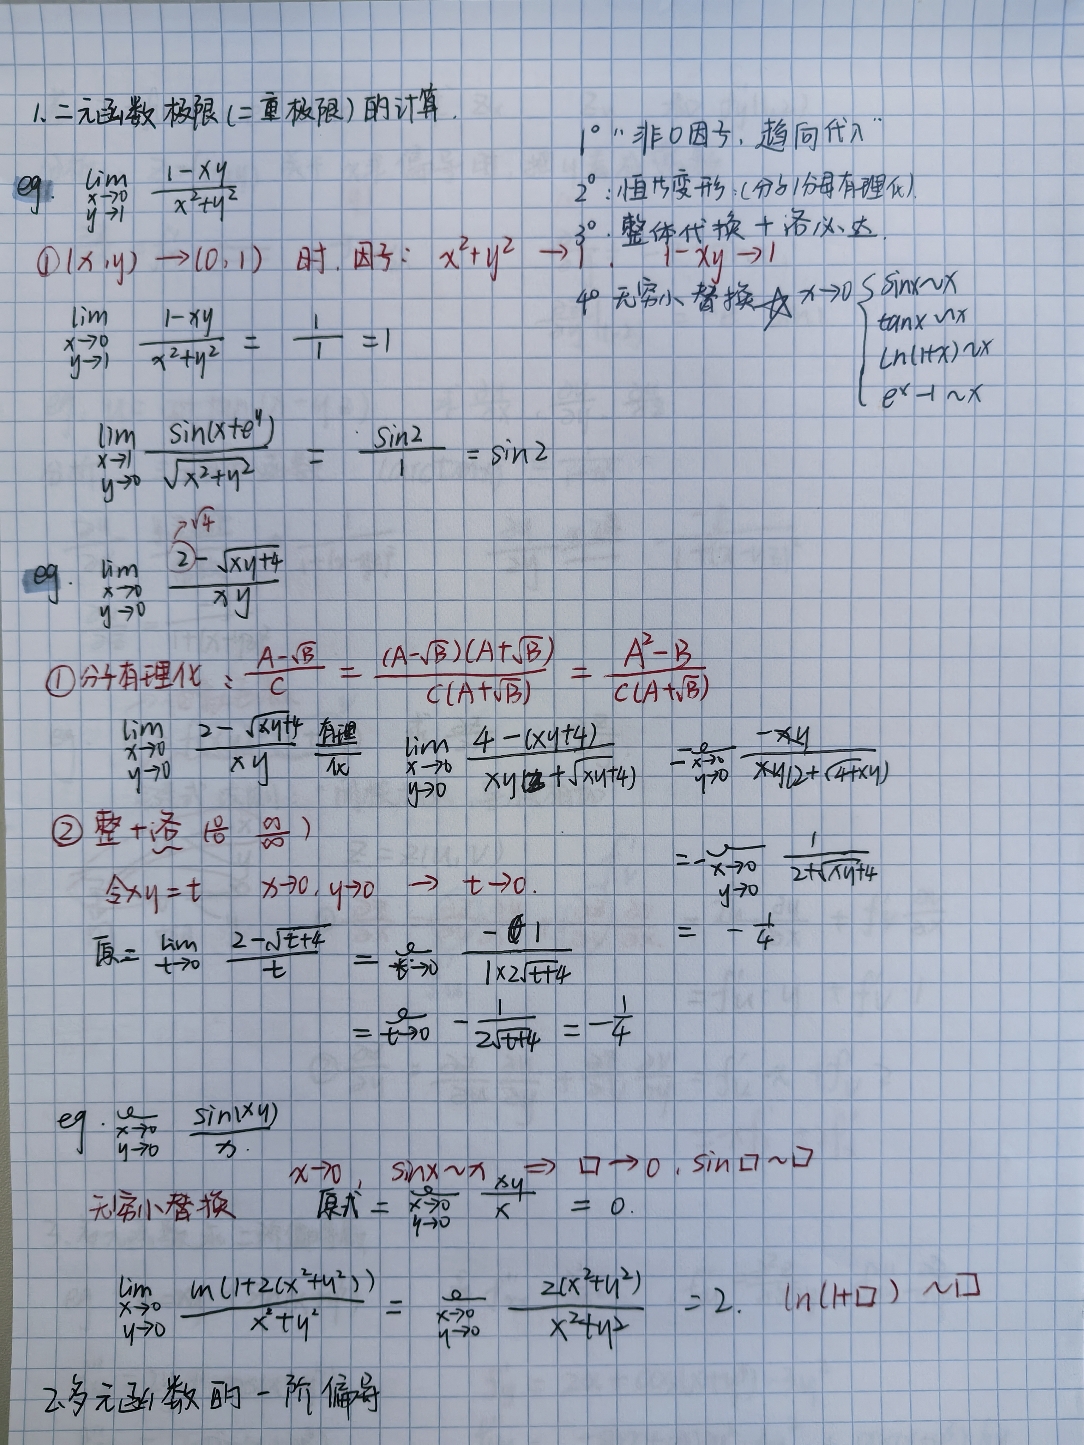 1. 二元函数极限(二重极限)的计算.
1° "非0因子, 趋向代入"
2°: 恒等变形: (分子/分母有理化)
3°. 整体代换 + 洛必达.
4° 无穷小替换 ☆ x→0 { sinx~x
tanx~x
ln(1+x)~x
e^x-1~x
eg. lim_{x→0, y→1} (1-xy)/(x²+y²)
①(x,y) → (0,1) 时. 因子: x²+y² → 1. 1-xy→1
lim_{x→0, y→1} (1-xy)/(x²+y²) = 1/1 = 1
lim_{x→1, y→0} sin(x+e^y)/√(x²+y²) = sin2/1 = sin2
→√4
eg. lim_{x→0, y→0} (2-√(xy+4))/(xy)
①分子有理化: (A-√B)/C = (A-√B)(A+√B)/(C(A+√B)) = (A²-B)/(C(A+√B))
lim_{x→0, y→0} (2-√(xy+4))/(xy) 有理化 lim_{x→0, y→0} (4-(xy+4))/(xy(2+√(xy+4))) = lim_{x→0, y→0} (-xy)/(xy(2+√(4+xy)))
= -lim_{x→0, y→0} 1/(2+√(xy+4))
= -1/4
② 整+洛 (0/0 ∞/∞)
令xy=t x→0, y→0 → t→0.
原= lim_{t→0} (2-√(t+4))/t = lim_{t→0} (-1)/(1×2√(t+4))
= lim_{t→0} -1/(2√(t+4)) = -1/4
eg. lim_{x→0, y→0} sin(xy)/x.
x→0, sinx~x ⇒ □→0, sin□~□
无穷小替换 原式 = lim_{x→0, y→0} xy/x = 0.
lim_{x→0, y→0} ln(1+2(x²+y²))/(x²+y²) = lim_{x→0, y→0} 2(x²+y²)/(x²+y²) = 2. ln(1+□) ~□
2.多元函数的一阶偏导